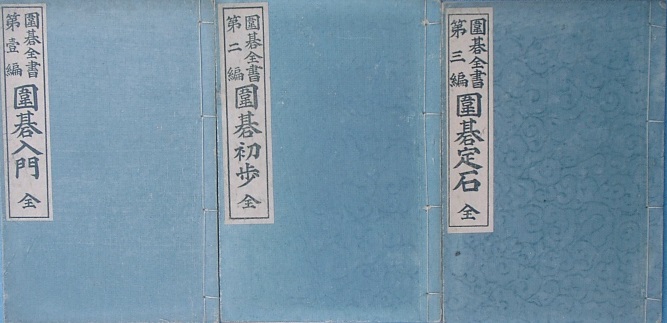 圍碁全書
第壹編
圍碁入門
全
圍碁全書
第二編
圍碁初歩
全
圍碁全書
第三編
圍碁定石
全